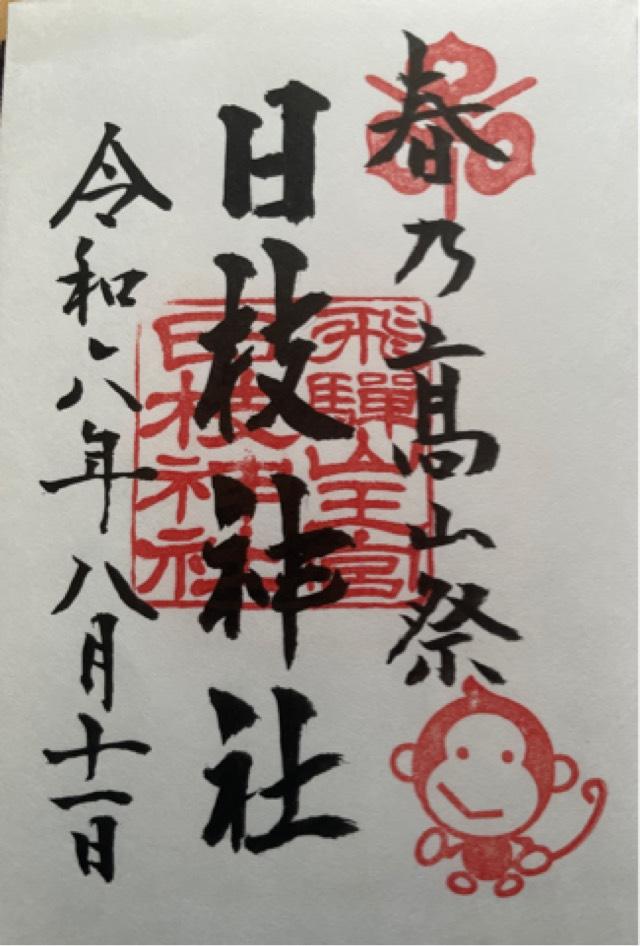 春乃髙山祭
日枝神社
飛驒山王宮
日枝神社
令和六年八月十一日